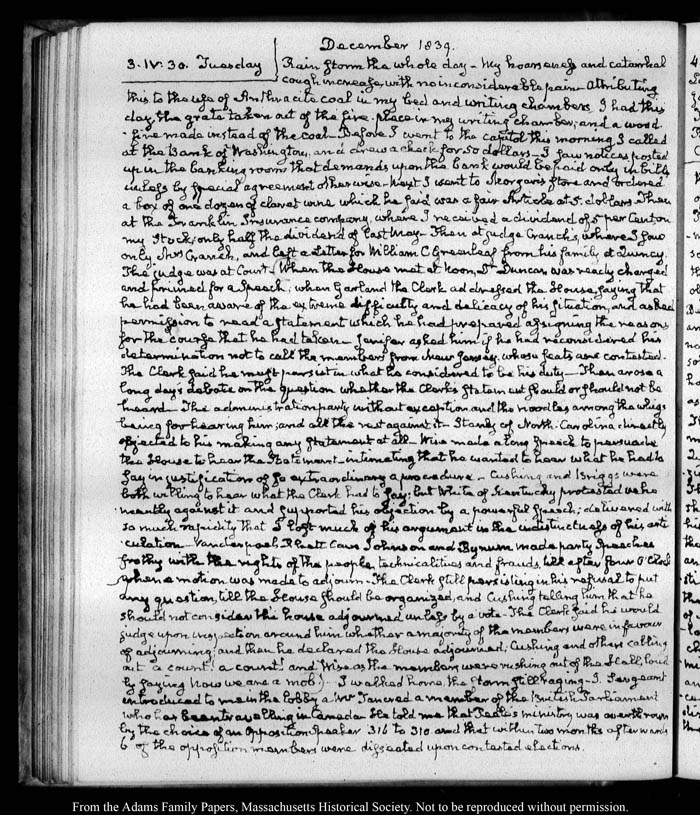 December 1839.
3. IV: 30. Tuesday
Rain storm the whole day - My hoarseness and catarrhal
cough increase, with no inconsiderable pain - Attributing
this to the use of Anthracite coal in my bed and writing chambers, I had this
day the grate taken out of the fire-place in my writing chamber, and a wood-
fire made instead of the coal - Before I went to the capitol this morning I called
at the Bank of Washington, and drew a check for 50 dollars - I saw notices posted
up in the banking room that demands upon the bank would be paid only in bills
unless by special agreement otherwise - Next I went to Morgan's store and ordered
a box of one dozen of claret wine which he said was a fair Article at 5. dollars. Then
at the Franklin Insurance company, where I received a dividend of 5 per Cent on
my Stock; only half the dividend of last May - Then at judge Cranch's, where I saw
only Mrs Cranch, and left a Letter for William C Greenleaf from his family at Quincy.
The judge was at Court. When the House met at Noon, Dr Duncan was ready charged
and primed for a Speech; when Garland the Clerk addressed the House, saying that
he had been aware of the extreme difficulty and delicacy of his situation, and asked
permission to read a statement which he had prepared assigning the reasons
for the course that he had taken - Jenifer asked him if he had reconsidered his
determination not to call the members from New Jersey, whose seats are contested.
The Clerk said he must persist in what he considered to be his duty - Then arose a
long day's debate on the question whether the Clerk's Statement should or should not be
heard - The administration party without exception and the noodles among the whigs
being for hearing him; and all the rest against it - Stanly of North-Carolina directly
objected to his making any Statement at all - Wise made a long Speech to persuade
the House to hear the Statement - intimating that he wanted to hear what he had to
say in justification of so extraordinary a procedure - Cushing and Briggs were
both willing to hear what the Clerk had to say; but White of Kentucky protested vehe-
mently against it and supported his objection by a powerful Speech; delivered with
so much rapidity that I lost much of his argument in the indistinctness of his arti-
culation - Vanderpoel, Rhett Cave Johnson and Bynum made party Speeches
frothy with the rights of the people, technicalities and frauds, till after four O'Clock
when a motion was made to adjourn - The Clerk still persisting in his refusal to put
any question, till the House should be organized, and Cushing telling him that he
should not consider the house adjourned unless by a vote - The Clerk said he would
judge upon inspection around him whether a majority of the members were in favour
of adjourning; and then he declared the House adjourned; Cushing and others calling
out a count! a count! and Wise as the members were rushing out of the Hall, loud-
ly saying Now we are a mob! - I walked home, the storm still raging - I. Sergeant
introduced to me in the lobby a Mr Tancred a member of the British Parliament
who has been travelling in Canada He told me that Peel's ministry was overthrown
by the choice of an Opposition Speaker 316 to 310 and that within two months afterwards
6 of the opposition members were disseated upon contested elections.
From the Adams Family Papers, Massachusetts Historical Society. Not to be reproduced without permission.